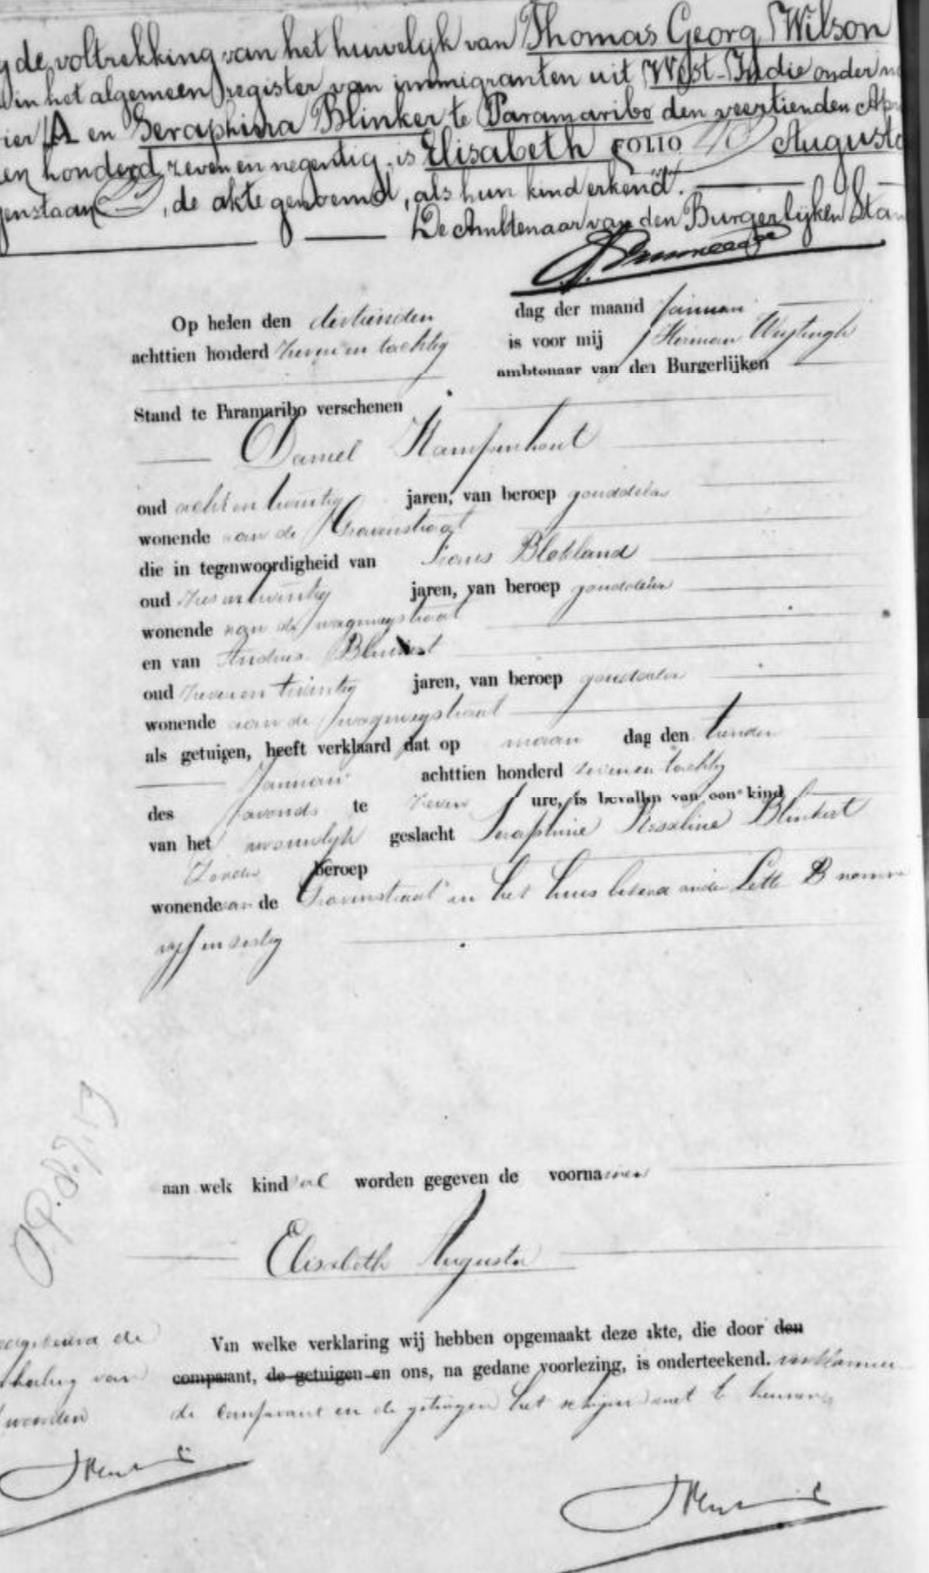 de voltrekking van het huwelijk van Thomas Georg Wilson
in het algemeen register van immigranten uit West-Indie onder
A en Seraphina Blinker te Paramaribo den veertienden Ap
en honderd zeven en negentig, is Elisabeth FOLIO Augusta
enstaan, de akte genoemd, als hun kind erkend.
De Ambtenaar van den Burgerlijken Stan
Op heden den dertienden dag der maand Januari
achttien honderd zeven en tachtig is voor mij Herman
ambtenaar van den Burgerlijken
Stand te Paramaribo verschenen
Daniel Kampenhout
oud acht en twintig jaren, van beroep gouddelver
wonende aan de Gravenstraat
die in tegenwoordigheid van Frans Blokland
oud zes en twintig jaren, van beroep gouddelver
wonende aan de wagenwegstraat
en van Andries Blinkert
oud zeven en twintig jaren, van beroep gouddelver
wonende aan de wagenwegstraat
als getuigen, heeft verklaard dat op maan dag den tienden
Januari achttien honderd zeven en tachtig
des avonds te zeven ure, is bevallen van een kind
van het vrouwelijk geslacht Seraphine Rosaline Blinkert
Zonder beroep
wonende aan de Gravenstraat in het huis bekend onder Lett B nommer
vijf en zestig
aan welk kind worden gegeven de voornamen
Elisabeth Augusta
Van welke verklaring wij hebben opgemaakt deze akte, die door den
comparant, de getuigen en ons, na gedane voorlezing, is onderteekend. verklarende
de comparant en de getuigen het schrijven niet te kennen
de
van
woorden